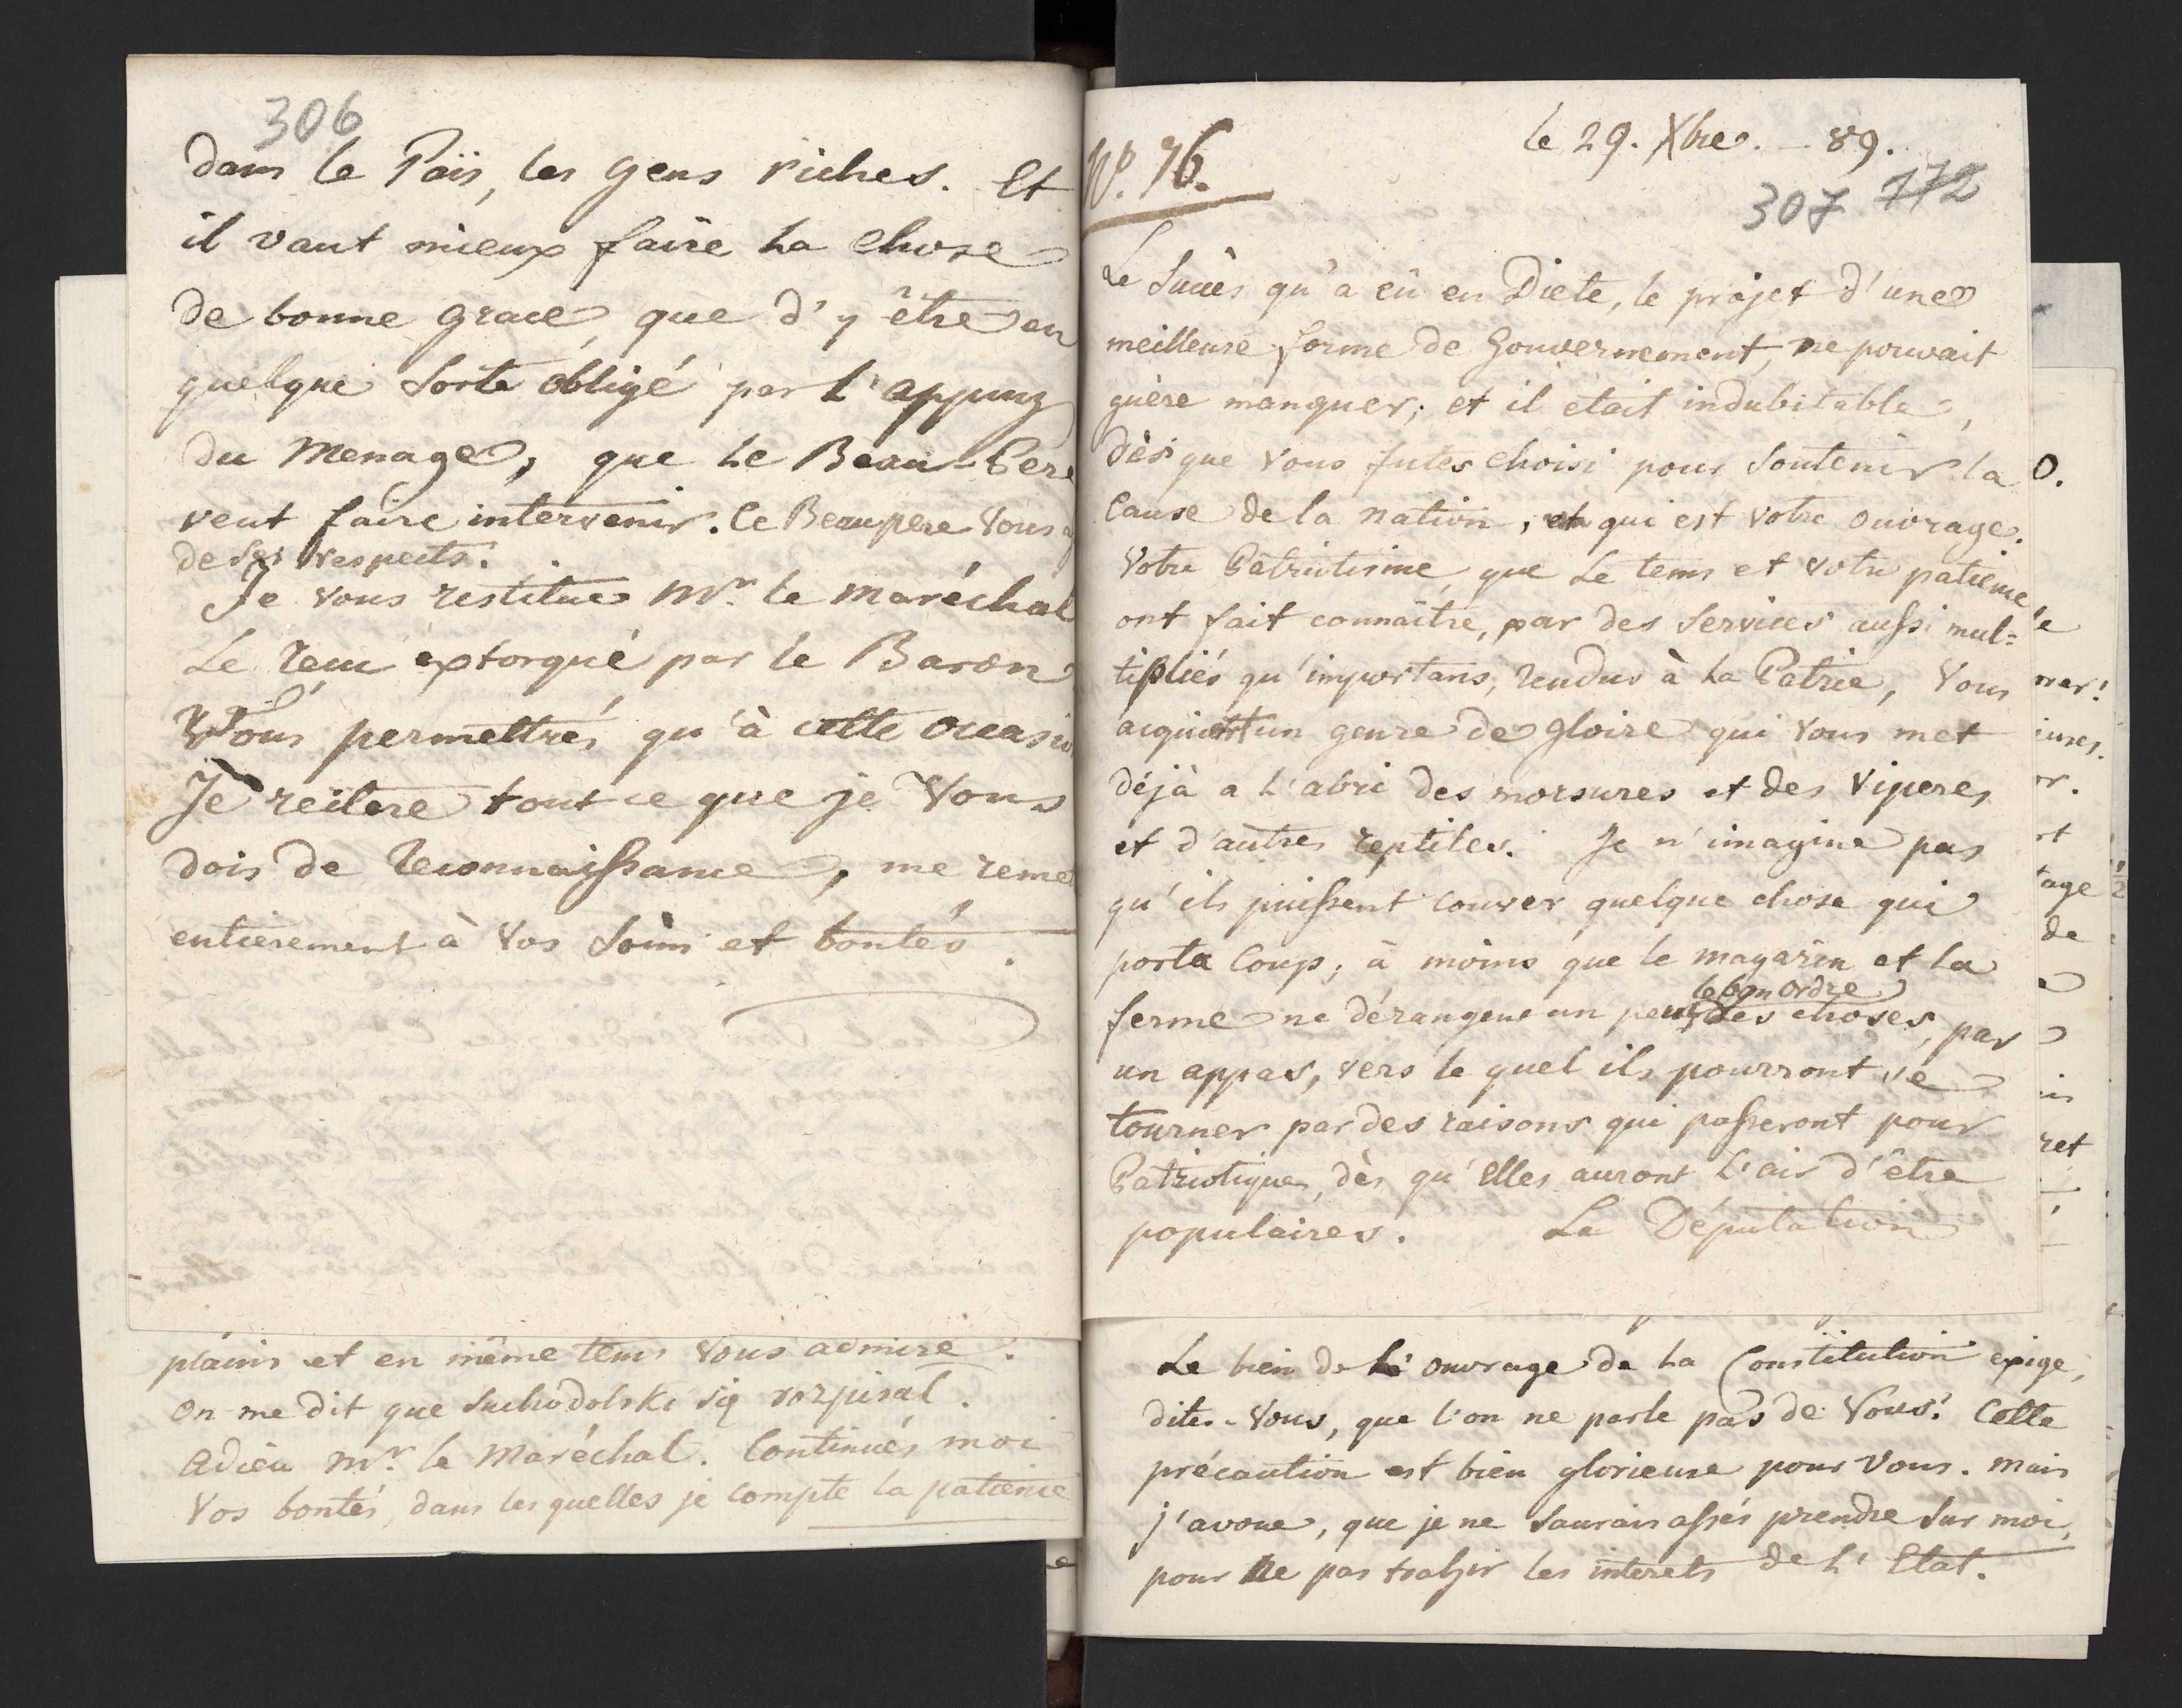 306
dans le Païs, les gens riches. Et
il vaut mieux faire la chose
de bonne grace, que d'y être en
quelque sorte obligé par l'appuy
du menage, que le Beau-Pere
veut faire intervenir. Ce Beaupere vous
de ses respects.
Je vous restitue Mr. le Maréchal
Le reçu extorqué par le Baron
Vous permettrés qu'à cette occasio
Je reitere tout ce que je Vous
dois de reconnaissance, me reme
entièrement à Vos soins et bontés.
plains et en même tems Vous admire.
On me dit que Suchodolski się rozpisał.
Adieu Mr. le Maréchal. Continués moi
Vos bontés, dans lesquelles je compte la patience
No. 76.
le 29. Xbre. - 89.
307 172
Le succès qu'a eû en Diete, le projet d'une
meilleure forme de Gouvernement, ne pouvait
guère manquer; et il etait indubitable,
dès que vous futes choisi pour soutenir la
Cause de la nation, qui est votre ouvrage.
Votre Patriotisme, que le tems et votre patience
ont fait connaître, par des services aussi mul=
tipliés qu'importans, rendus à la Patrie, Vous
acquiert un genre de gloire qui vous met
déjà a l'abri des morsures et des viperes
et d'autres reptiles. Je n'imagine pas
qu'ils puissent couver quelque chose qui
porta coup; à moins que le magazin et la
le bon ordre
ferme ne dérangent un peu des choses, par
un appas, vers le quel ils pourront se
tourner par des raisons qui passeront pour
Patriotiques, dès qu'elles auront l'air d'être
populaires. La Députation
Le bien de l'ouvrage de la Constitution exige,
dites-Vous, que l'on ne parle pas de Vous! Cette
précaution est bien glorieuse pour Vous. mais
j'avoue, que je ne saurais assés prendre sur moi,
pour ne pas trahir les interets de l'Etat.